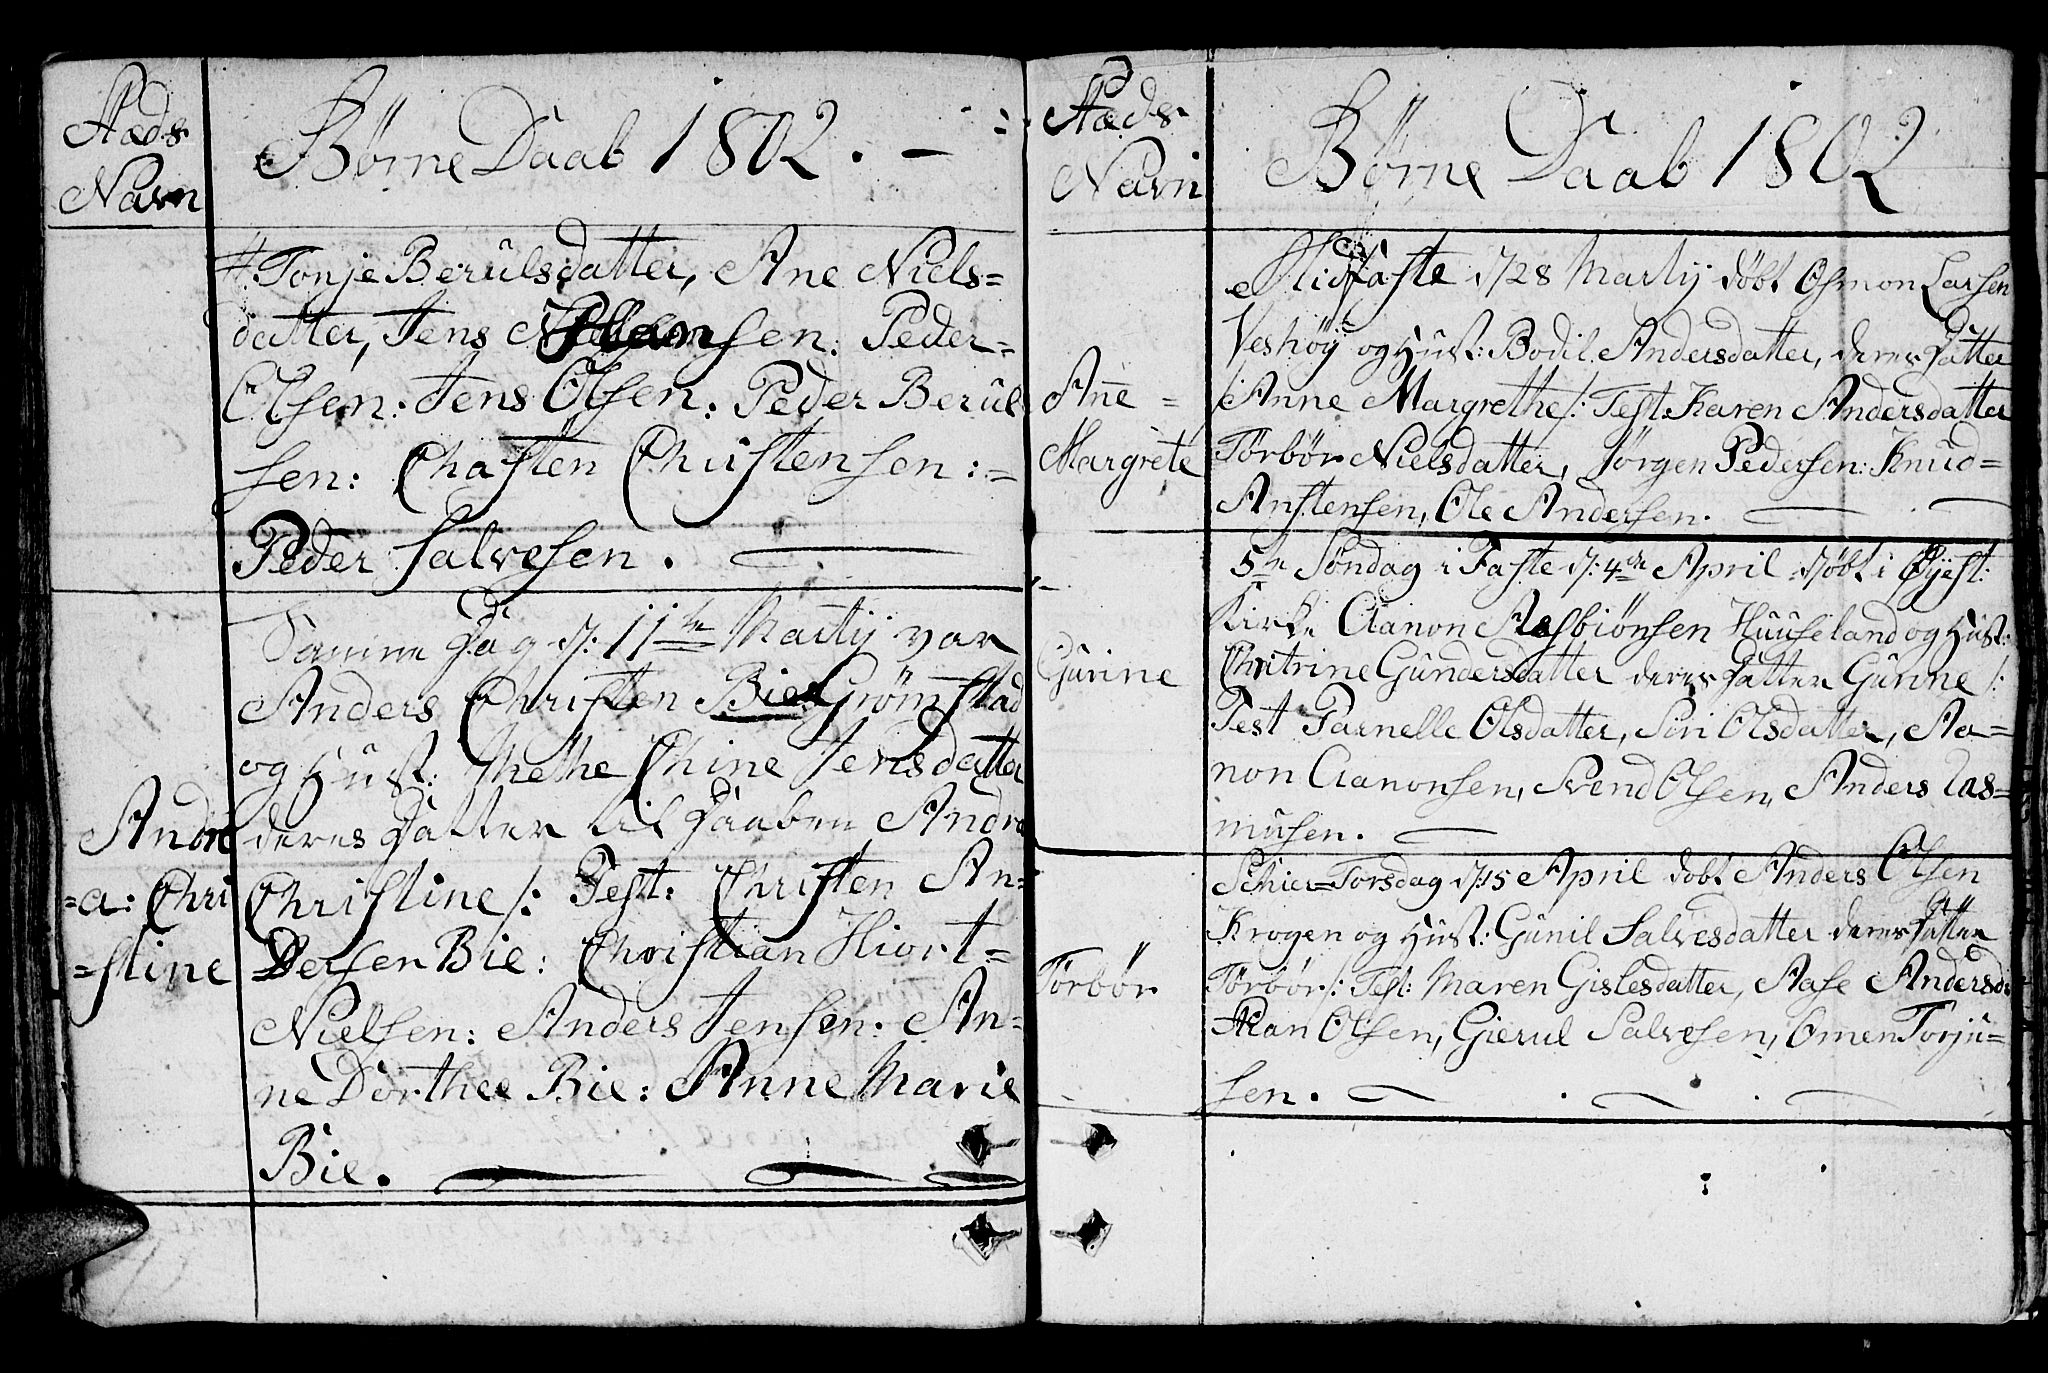 Stæds
Navn
Børne Daab 1802.
# Tonje Berulsdatter, Ane Niels=
datter, Jens Olsen: Peder=
Olsen: Jens Olsen: Peder Berul
sen: Chasten Christensen:=
Peder Salvesen.
Samme Dag d: 11te Martij var
Anders Christen Bie Grømstad
og Hust: Methe Chine Jensdatter
Andre
deres Datter til Daaben Andre
=a: Chri
Christine /: Test: Christen An=
=stine
Dersen Bie: Christian Hiort=
Nielsen: Anders Jensen: An=
ne Dorthee Bie: Anne Marie
Bie.
Stæds
Navn
Børne Daab 1802
Midfaste d 28 Martij døbt Osmon Larsen
Veshøÿ og Hust: Bodil Andersdatter, deres Datter
Ane=
Anne Margrethe /: Test: Karen Andersdatter
Margrete
Tørbør Nielsdatter, Jørgen Pedersen: Knud=
Anstensen, Ole Andersen.
5te Søndag i Faste d: 4de April døbt i Øÿest:
Kirke Aanon Asbiønsen Huuseland og Hust:
Gurine
Chritrine Gundersdatter deres Datter Gurine /:
Test Parnelle Olsdatter, Siri Olsdatter, Aa=
non Aanonsen, Svend Olsen, Anders Ras=
musen.
Schier=Torsdag d 15 April døbt Anders Olsen
Krogen og Hust: Gunil Salvesdatter deres Datter
Tørbør
Tørbør /: Test: Maren Gislesdatter, Aase Andersd:
Olsen, Gierul Salvesen, Omen Torju=
sen.